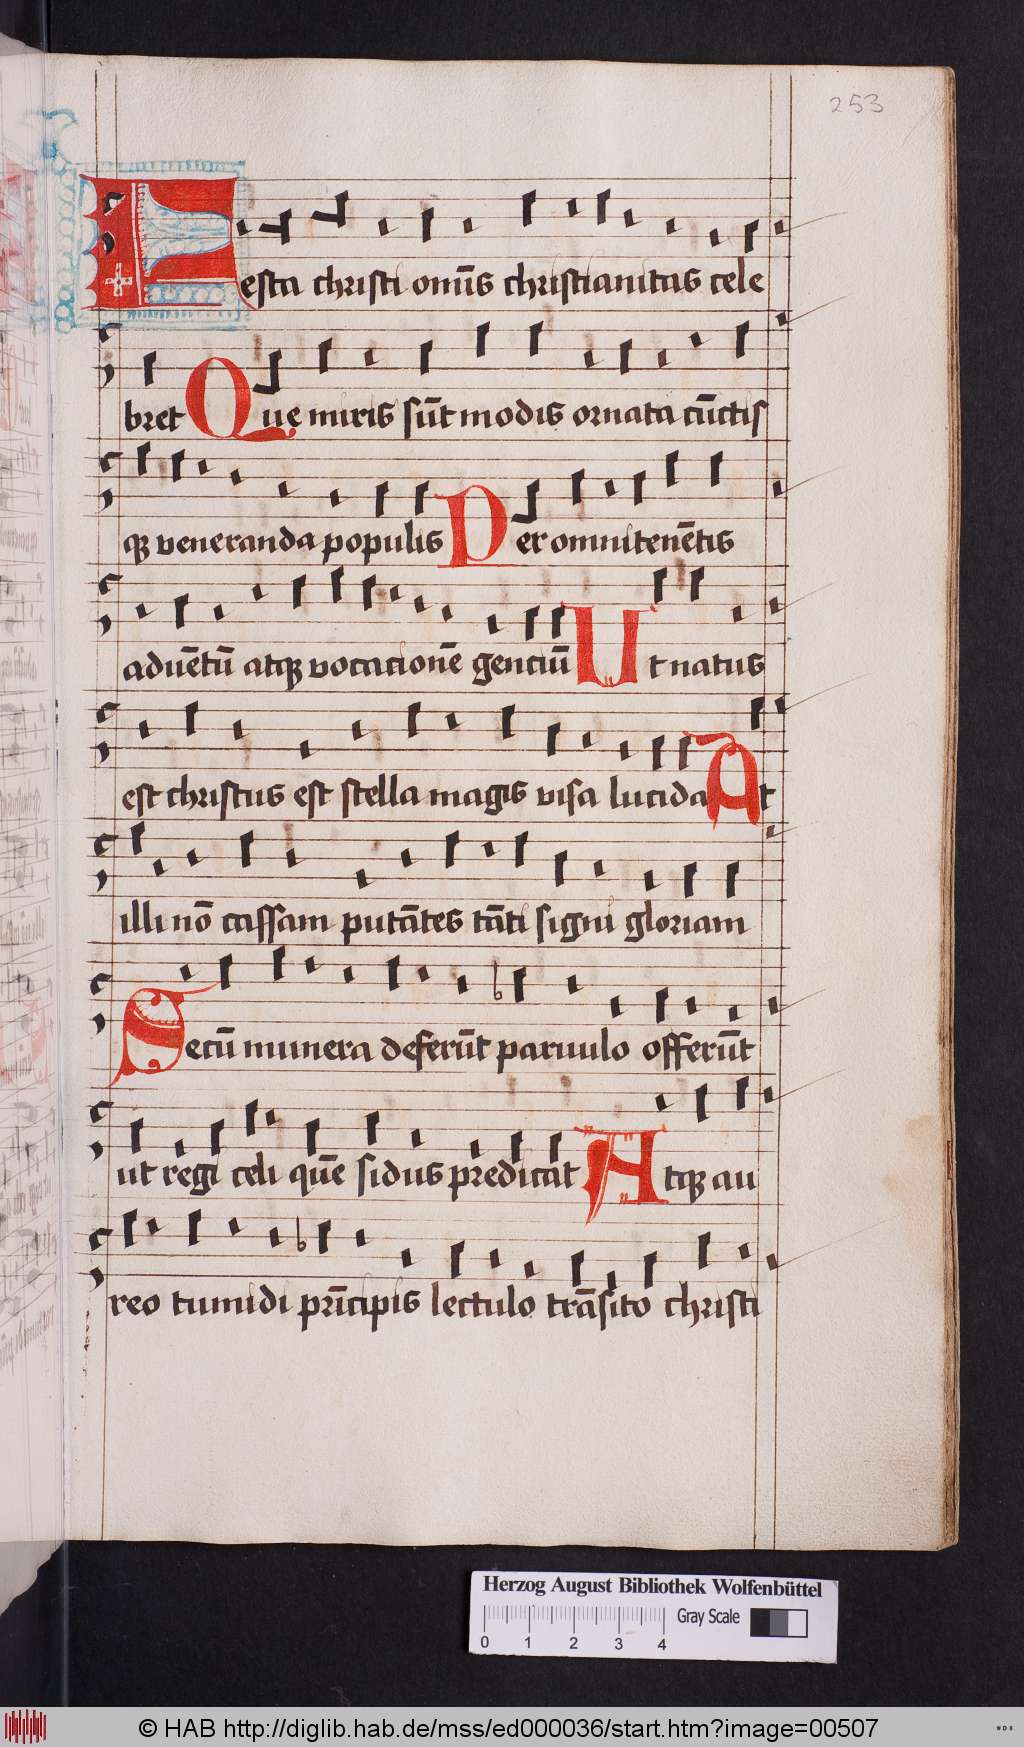 253
Festa christi omīs christianitas cele
bret Que miris sūt modis ornata cūctis
qꝫ veneranda populis Per omnitenētis
aduētū atqꝫ vocacionē genciū Ut natus
est christus est stella magis visa lucida At
illi nō cassam putātes tāti signi gloriam
Secū munera deferūt paruulo offerūt
ut regi celi quē sidus predicat Atqꝫ au
reo tumidi prīcipis lectulo trāsito christi
Herzog August Bibliothek Wolfenbüttel
Gray Scale
0 1 2 3 4
© HAB http://diglib.hab.de/mss/ed000036/start.htm?image=00507
WDB